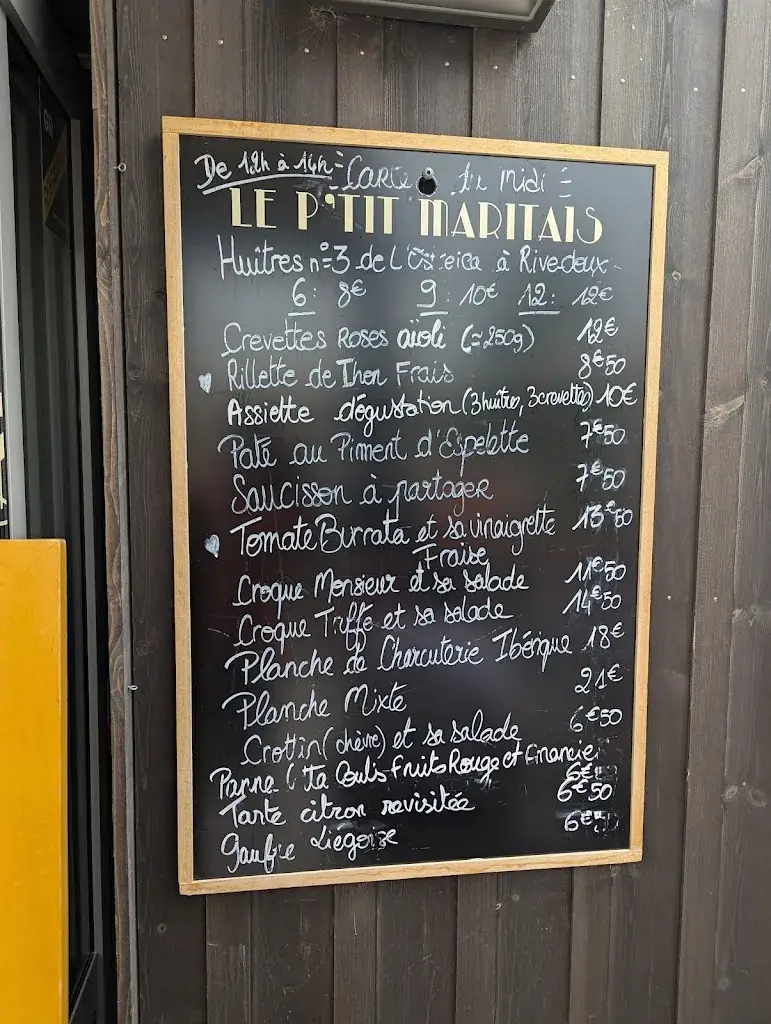 De 12h à 14h = Carte du Midi =
LE P'TIT MARITAIS
Huîtres n°3 de L'Ostreica à Rivedoux
6: 8€ 9: 10€ 12: 12€
Crevettes Roses aïoli (≃250g) 12€
Rillette de Thon Frais 8€50
Assiette dégustation (3 huîtres, 3 crevettes) 10€
Paté au Piment d'Espelette 7€50
Saucisson à partager 7€50
Tomate Burrata et sa vinaigrette 13€50
Fraise
Croque Monsieur et sa salade 11€50
Croque Truffe et sa salade 14€50
Planche de Charcuterie Ibérique 18€
Planche Mixte 21€
Crottin (chèvre) et sa salade 6€50
Coulis Fruits Rouge et Financier
Tarte citron revisitée 6€50
gaufre Liégoise